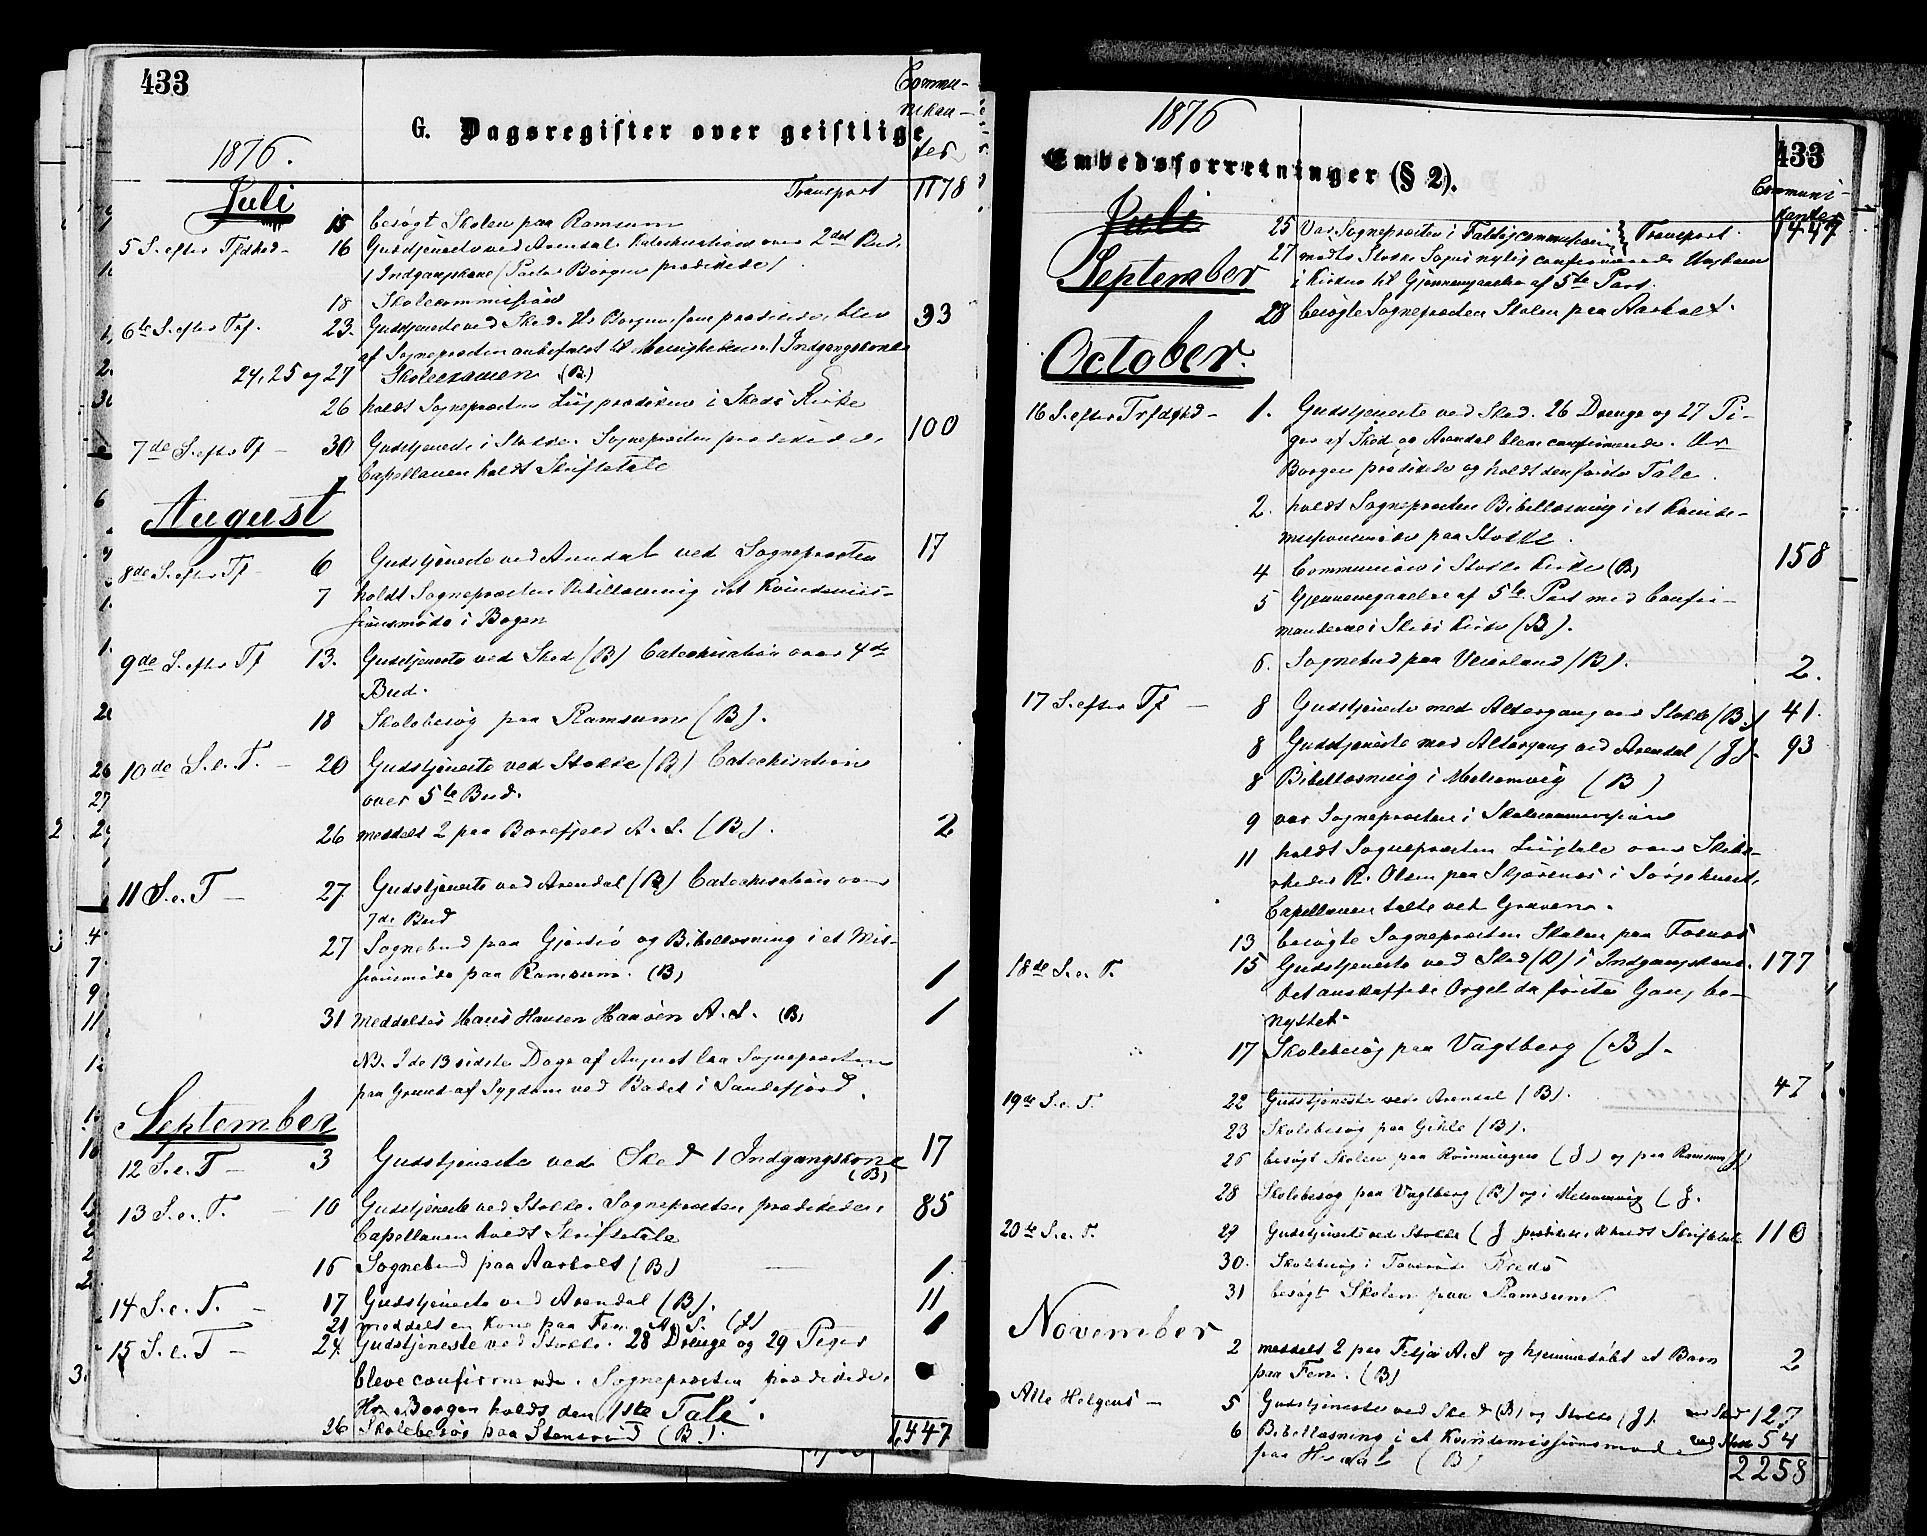 433
Commu-
nikan-
ter
G. Dagsregister over geistlige
1876.
Juli
Transport 1178
15 besøgt Skolen paa Ramsum
5 S. efter Tfdhed - 16 Gudstjeneste ved Arendal Catechisation over 2det Bud.
1 Indgangskone (Pastor Borgen prædikede)
18 Skolecommission
6te S. efter Trf. 23. Gudstjeneste ved Sked. Hr Borgen som prædikede, blev 33
af Sognepræsten anbefalet til Menigheden. 1 Indgangskone
24, 25 og 27 Skoleexamen (B.)
26 holdt Sognepræsten Liigprædiken i Skeds Kirke
7de S. efter Tf - 30 Gudstjeneste i Stokke. Sognepræsten prædikede. 100
Capellanen holdt Skriftetale
August
8de S. efter Tf - 6 Gudstjeneste ved Arendal ved Sognepræsten 17
7 holdt Sognepræsten Bibellæsning i et Kvindemis-
sionsmøde i Bogen
9de S. efter Tf 13. Gudstjeneste ved Sked (B) Catechisation over 4de
Bud.
18 Skolebesøg paa Ramsum (B).
10de S. e. T. - 20 Gudstjeneste ved Stokke (B) Catechisation
over 5te Bud.
26 meddelt 2 paa Borefjeld A. S. (B). 2
11 S. e. T - 27. Gudstjeneste ved Arendal (B) Catechisation over
7de Bud
27 Sognebud paa Gjersø og Bibellæsning i et Mis-
sionsmøde paa Ramsum. (B) 1
31 meddeltes Hans Hansen Haasen A. S. (B) 1
NB. I de 13 sidste Dage af August laa Sognepræsten
paa Grund af Sygdom ved Badet i Sandefjord.
September
12 S. e. T - 3 Gudstjeneste ved Sked 1 Indgangskone 17
(B)
13 S. e. T. - 10 Gudstjeneste ved Stokke. Sognepræsten prædikede. 85
Capellanen holdt Skriftetale
16 Sognebud paa Aarholt (B) 1.
14 S. e. T. - 17 Gudstjeneste ved Arendal (B). 11
21 meddelt en Kone paa Fem A. S. (J) 1
15 S. e. T - 24. Gudstjeneste ved Stokke. 28 Drenge og 29 Piger
bleve confirmerede. Sognepræsten prædikede.
Hr. Borgen holdt den 1ste Tale.
26 Skolebesøg paa Stensrud (B). 1,447
1876
433
Embedsforretninger (§ 2).
Communi-
kanter
Juli
25 Var Sognepræsten i Fattigcommission Transport. 1447
September
27 mødte Stokke Sogns nylig confirmerede Ungdom
i Kirken til Gjennemgaaelse af 5te Part.
28 besøgte Sognepræsten Skolen paa Aarholt.
October.
16 S. efter Trfdhd - 1. Gudstjeneste ved Sked. 26 Drenge og 27 Pi-
ger af Sked og Arendal bleve confirmerede. Hr
Borgen prædikede og holdt den første Tale.
2. holdt Sognepræsten Bibellæsning i et Kvinde-
missionsmøde paa Stokke.
4 Communion i Stokke Kirke (B) 158
5 Gjennemgaaelse af 5te Part med Confir-
manderne i Skeds Kirke (B).
6. Sognebud paa Veierland (B). 2.
17 S. efter Tf - 8 Gudstjeneste med Altergang ved Stokke (B.) 41.
8 Gudstjeneste med Altergang ved Arendal (J). 93
8 Bibellæsning i Melsomvig (B)
9 var Sognepræsten i Skolecommission
11 holdt Sognepræsten Liigtale over Skibs-
rheder R. Olsen paa Skjærsnes i Sørgehuset,
Capellanen talte ved Graven.
13 besøgte Sognepræsten Skolen paa Fosnes
18de S. e. T. 15 Gudstjeneste ved Sked (B) 1 Indgangskone. 177
Det anskaffede Orgel da første Gang be-
nyttet.
17 Skolebesøg paa Vagtberg (B).
19de S. e. T. 22 Gudstjeneste ved Arendal (B). 47
23 Skolebesøg paa Gikle (B).
26 besøgt Skolen paa Rønningen (J) og paa Ramsum (J)
28 Skolebesøg paa Vagtberg (B) og i Melsomvig (J.
20de S. e. T. 29 Gudstjeneste ved Stokke (J prædikede, B holdt Skriftetale 110
30. Skolebesøg i Kreds
31 besøgt Skolen paa Ramsum
November
2 meddelt 2 paa A. S og hjemmedøbt et Barn 2
paa Fem. (B)
Alle Helgens - 5 Gudstjeneste ved Sked (B) og Stokke (J). ved Sked 127
6 Bibellæsning i et Kvindemissionsmøde ved Stok 54
paa (B)
2258